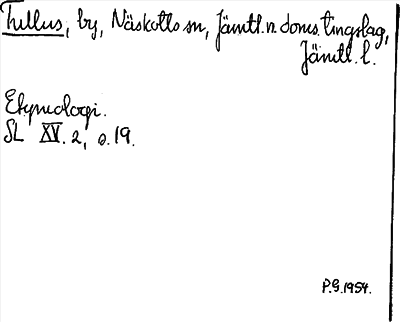 Tullus, by, Näskotts sn, Jämtl. n. doms. tingslag,
Jämtl. l.
Etymologi.
SL XV. 2, s. 19.
P.G. 1954.